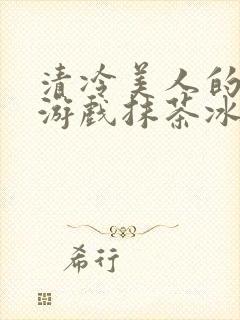 清冷美人的
游戏抹茶冰
希行